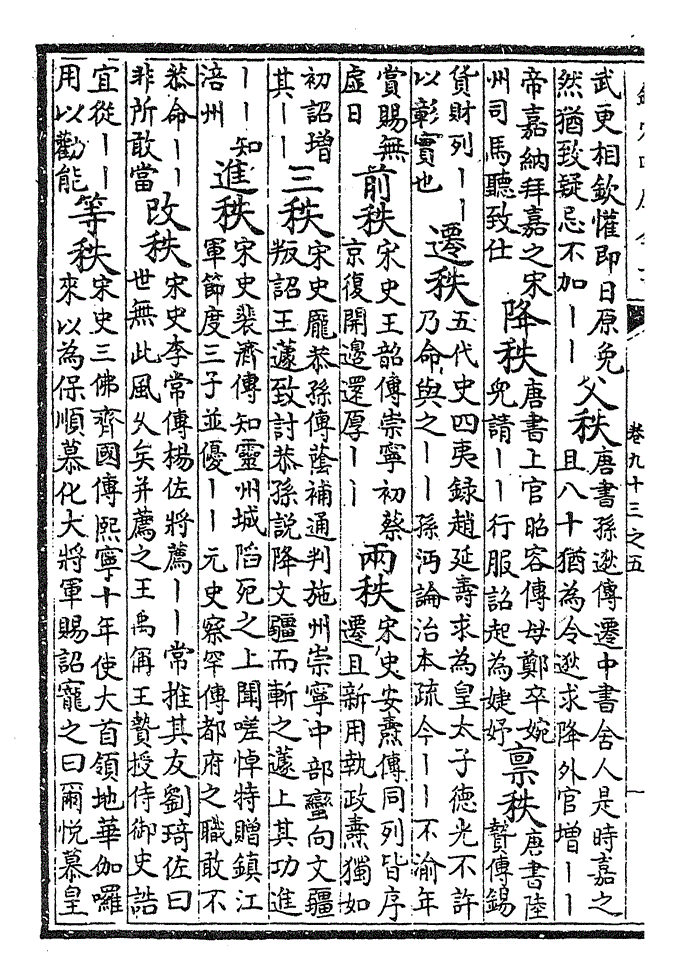 卷九十三之五
一
武更相欽懽即日原免
然猶致疑忌不加丨丨
父秩
唐書孫逖傳遷中書舍人是時嘉之
且八十猶為令逖求降外官增丨丨
帝嘉納拜嘉之宋
州司馬聽致仕
降秩
唐書上官昭容傳母鄭卒婉
兒請丨丨行服詔起為婕妤
稟秩
唐書陸
贄傳錫
貨財列丨丨
以彰實也
遷秩
五代史四夷録趙延壽求為皇太子德光不許
乃命與之丨丨孫沔論治本疏今丨丨不渝年
賞賜無
虛日
前秩
宋史王韶傳崇寧初蔡
京復開邊還厚丨丨
兩秩
宋史安燾傳同列皆序
遷且新用執政燾獨如
初詔增
其丨丨
三秩
宋史龐恭孫傳蔭補通判施州崇寧中部蠻向文彊
叛詔王蘧致討恭孫說降文彊而斬之蘧上其功進
丨丨知
涪州
進秩
宋史裴濟傳知靈州城陷死之上聞嗟悼特贈鎮江
軍節度三子並優丨丨元史察罕傳都府之職敢不
恭命丨丨
非所敢當
改秩
宋史李常傳楊佐將薦丨丨常推其友劉琦佐曰
世無此風久矣并薦之王禹偁王贄授侍御史誥
宜從丨丨
用以勸能
等秩
宋史三佛齊國傳熙寧十年使大首領地華伽囉
來以為保順慕化大將軍賜詔寵之曰爾悅慕皇